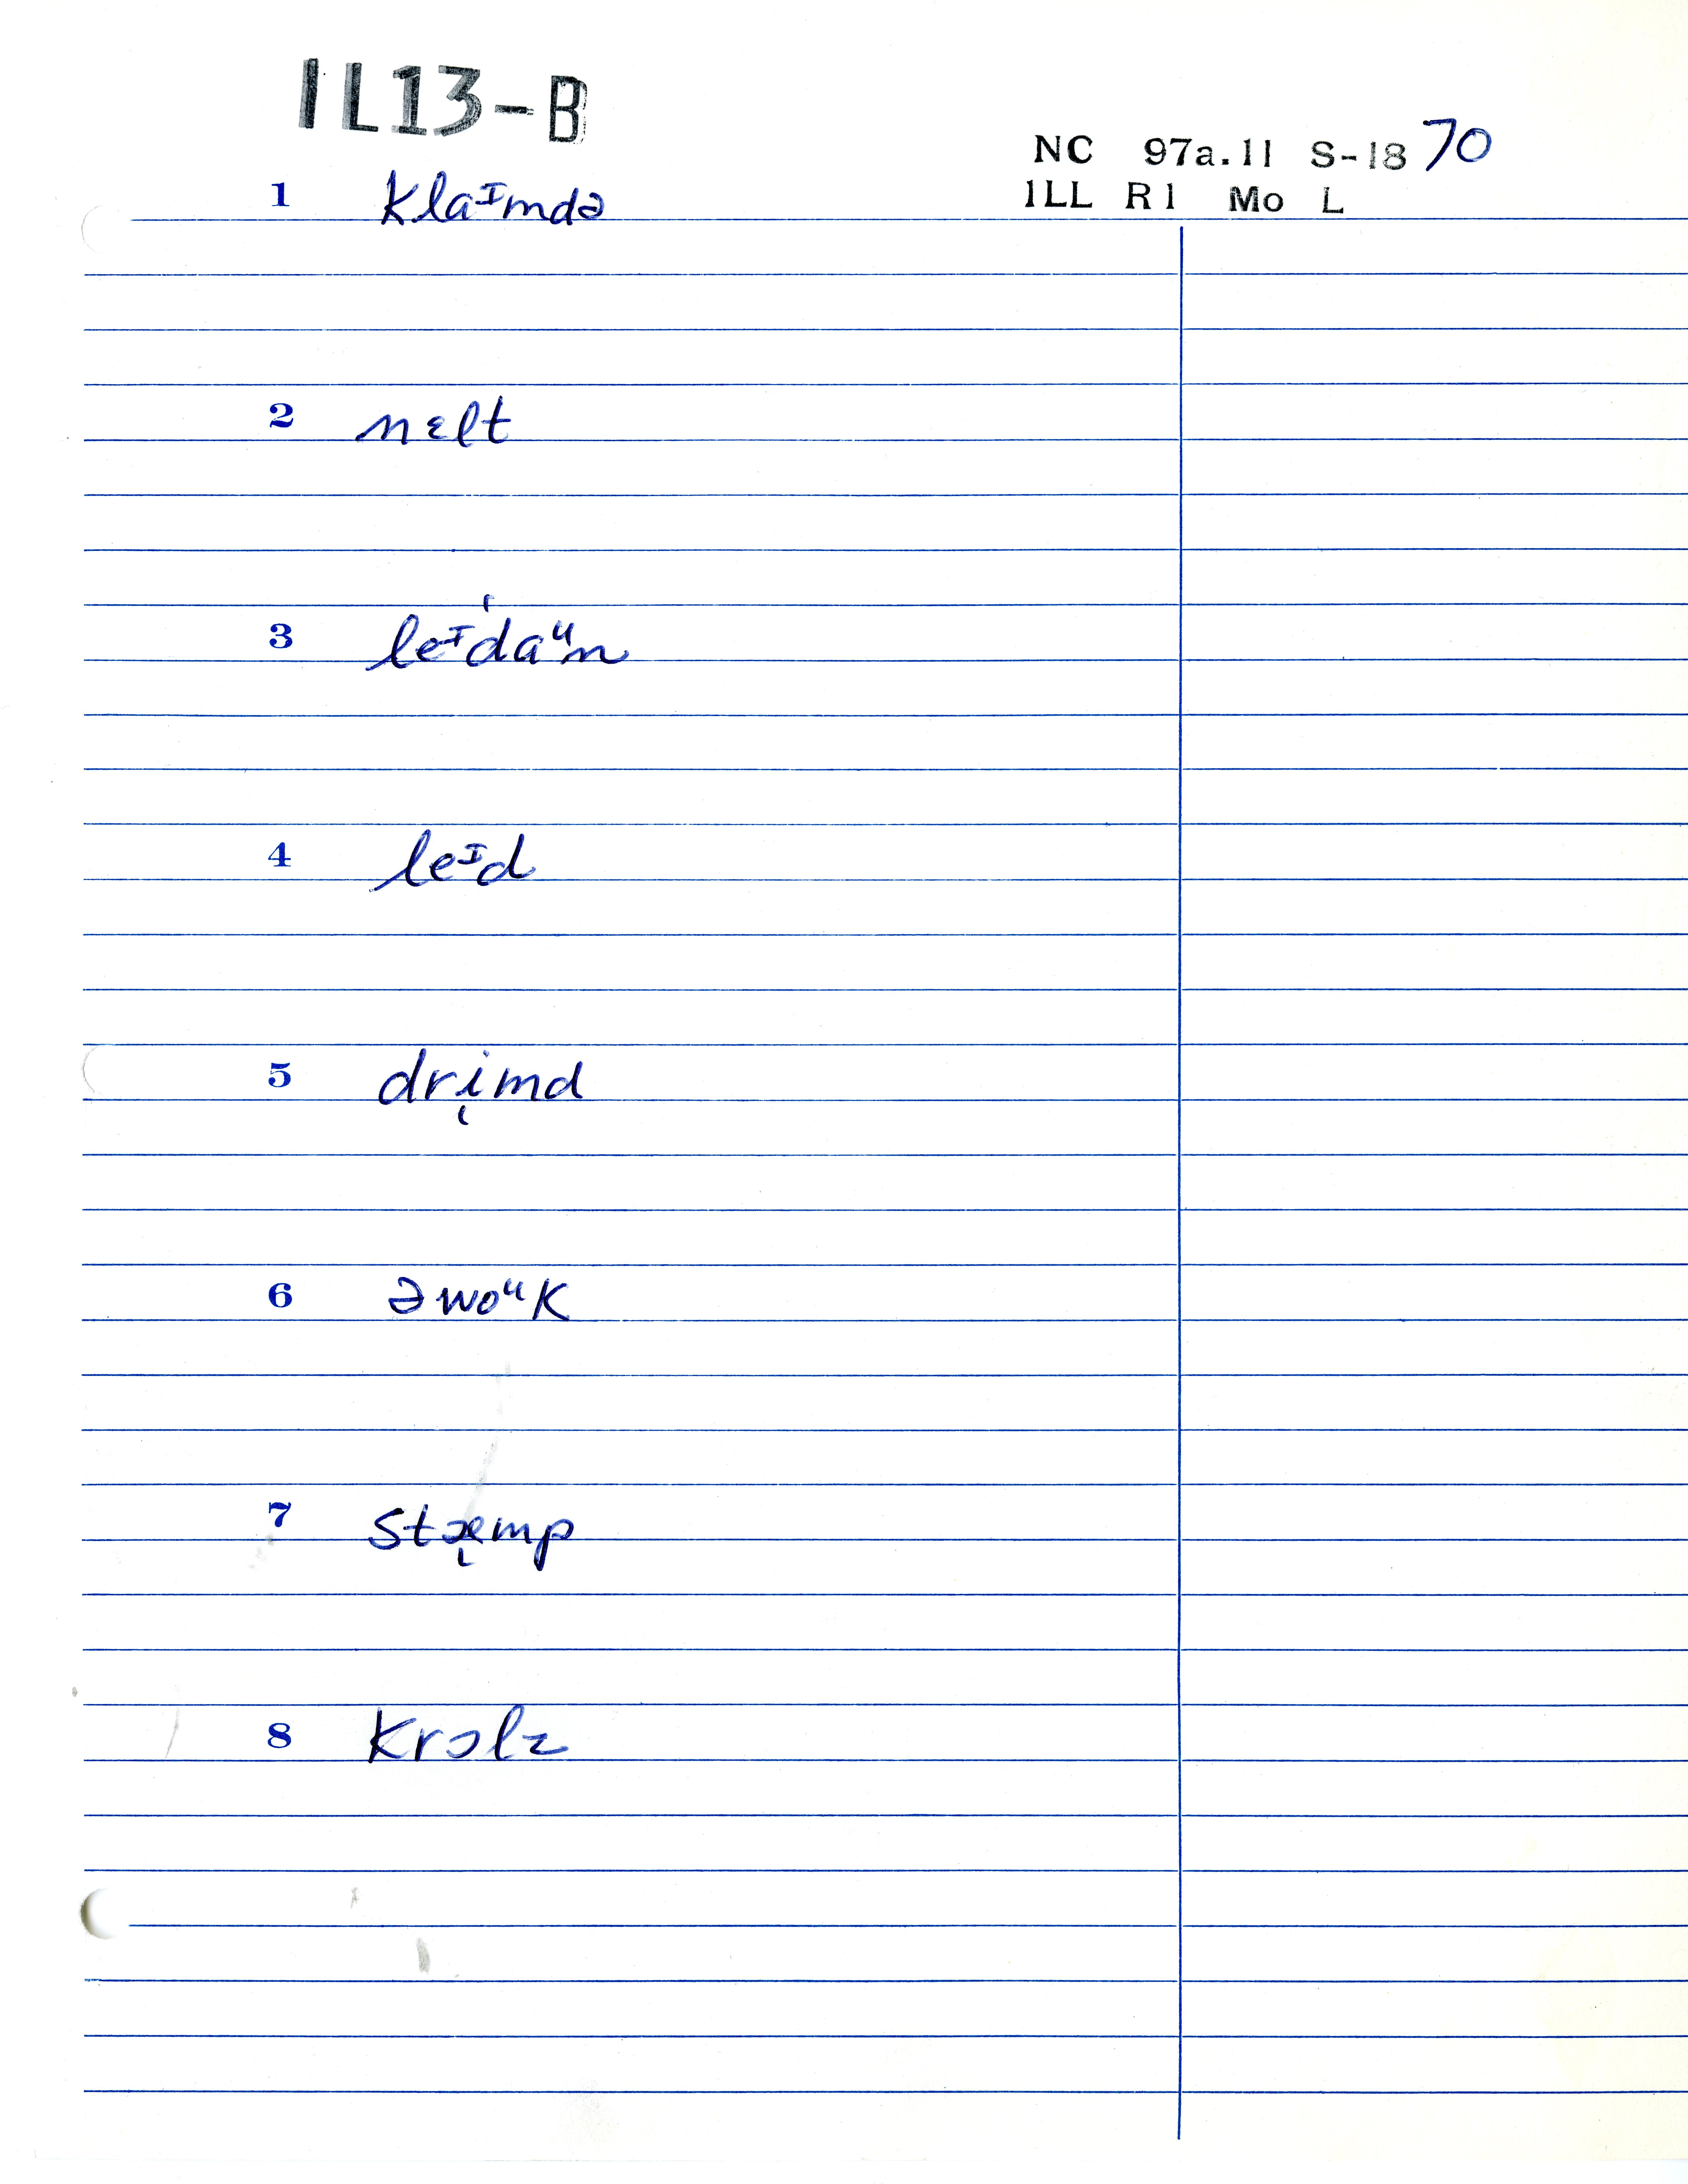 IL13-B
NC 97a.11 S-18 70
ILL R1 Mo L
1 klaᴵmdə
2 nɛlt
3 leᴵdaᵘn
4 leᴵd
5 dri̜md
6 əwoᵘk
7 stæ̜mp
8 krɔlz